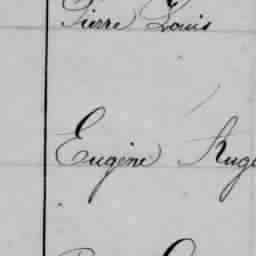 Pierre Louis
Eugène Aug